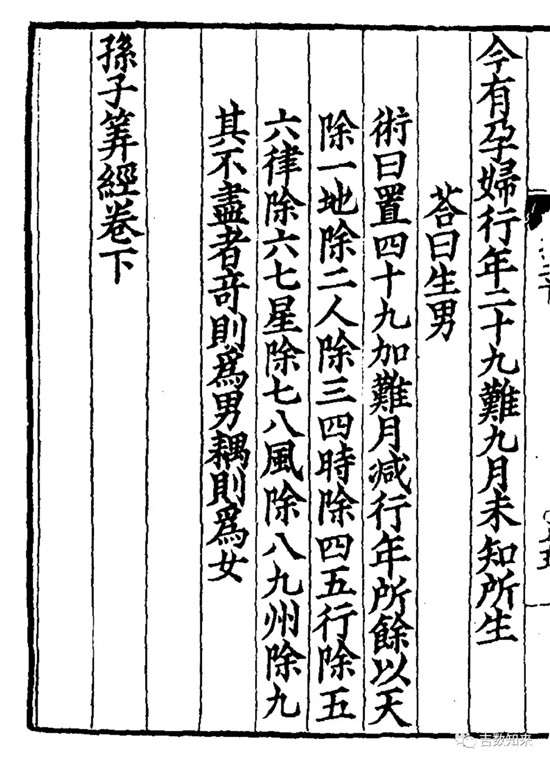 今有孕婦行年二十九難九月未知所生
荅曰生男
術曰置四十九加難月減行年所餘以天
除一地除二人除三四時除四五行除五
六律除六七星除七八風除八九州除九
其不盡者竒則爲男耦則爲女
孫子筭經卷下
吉数知来